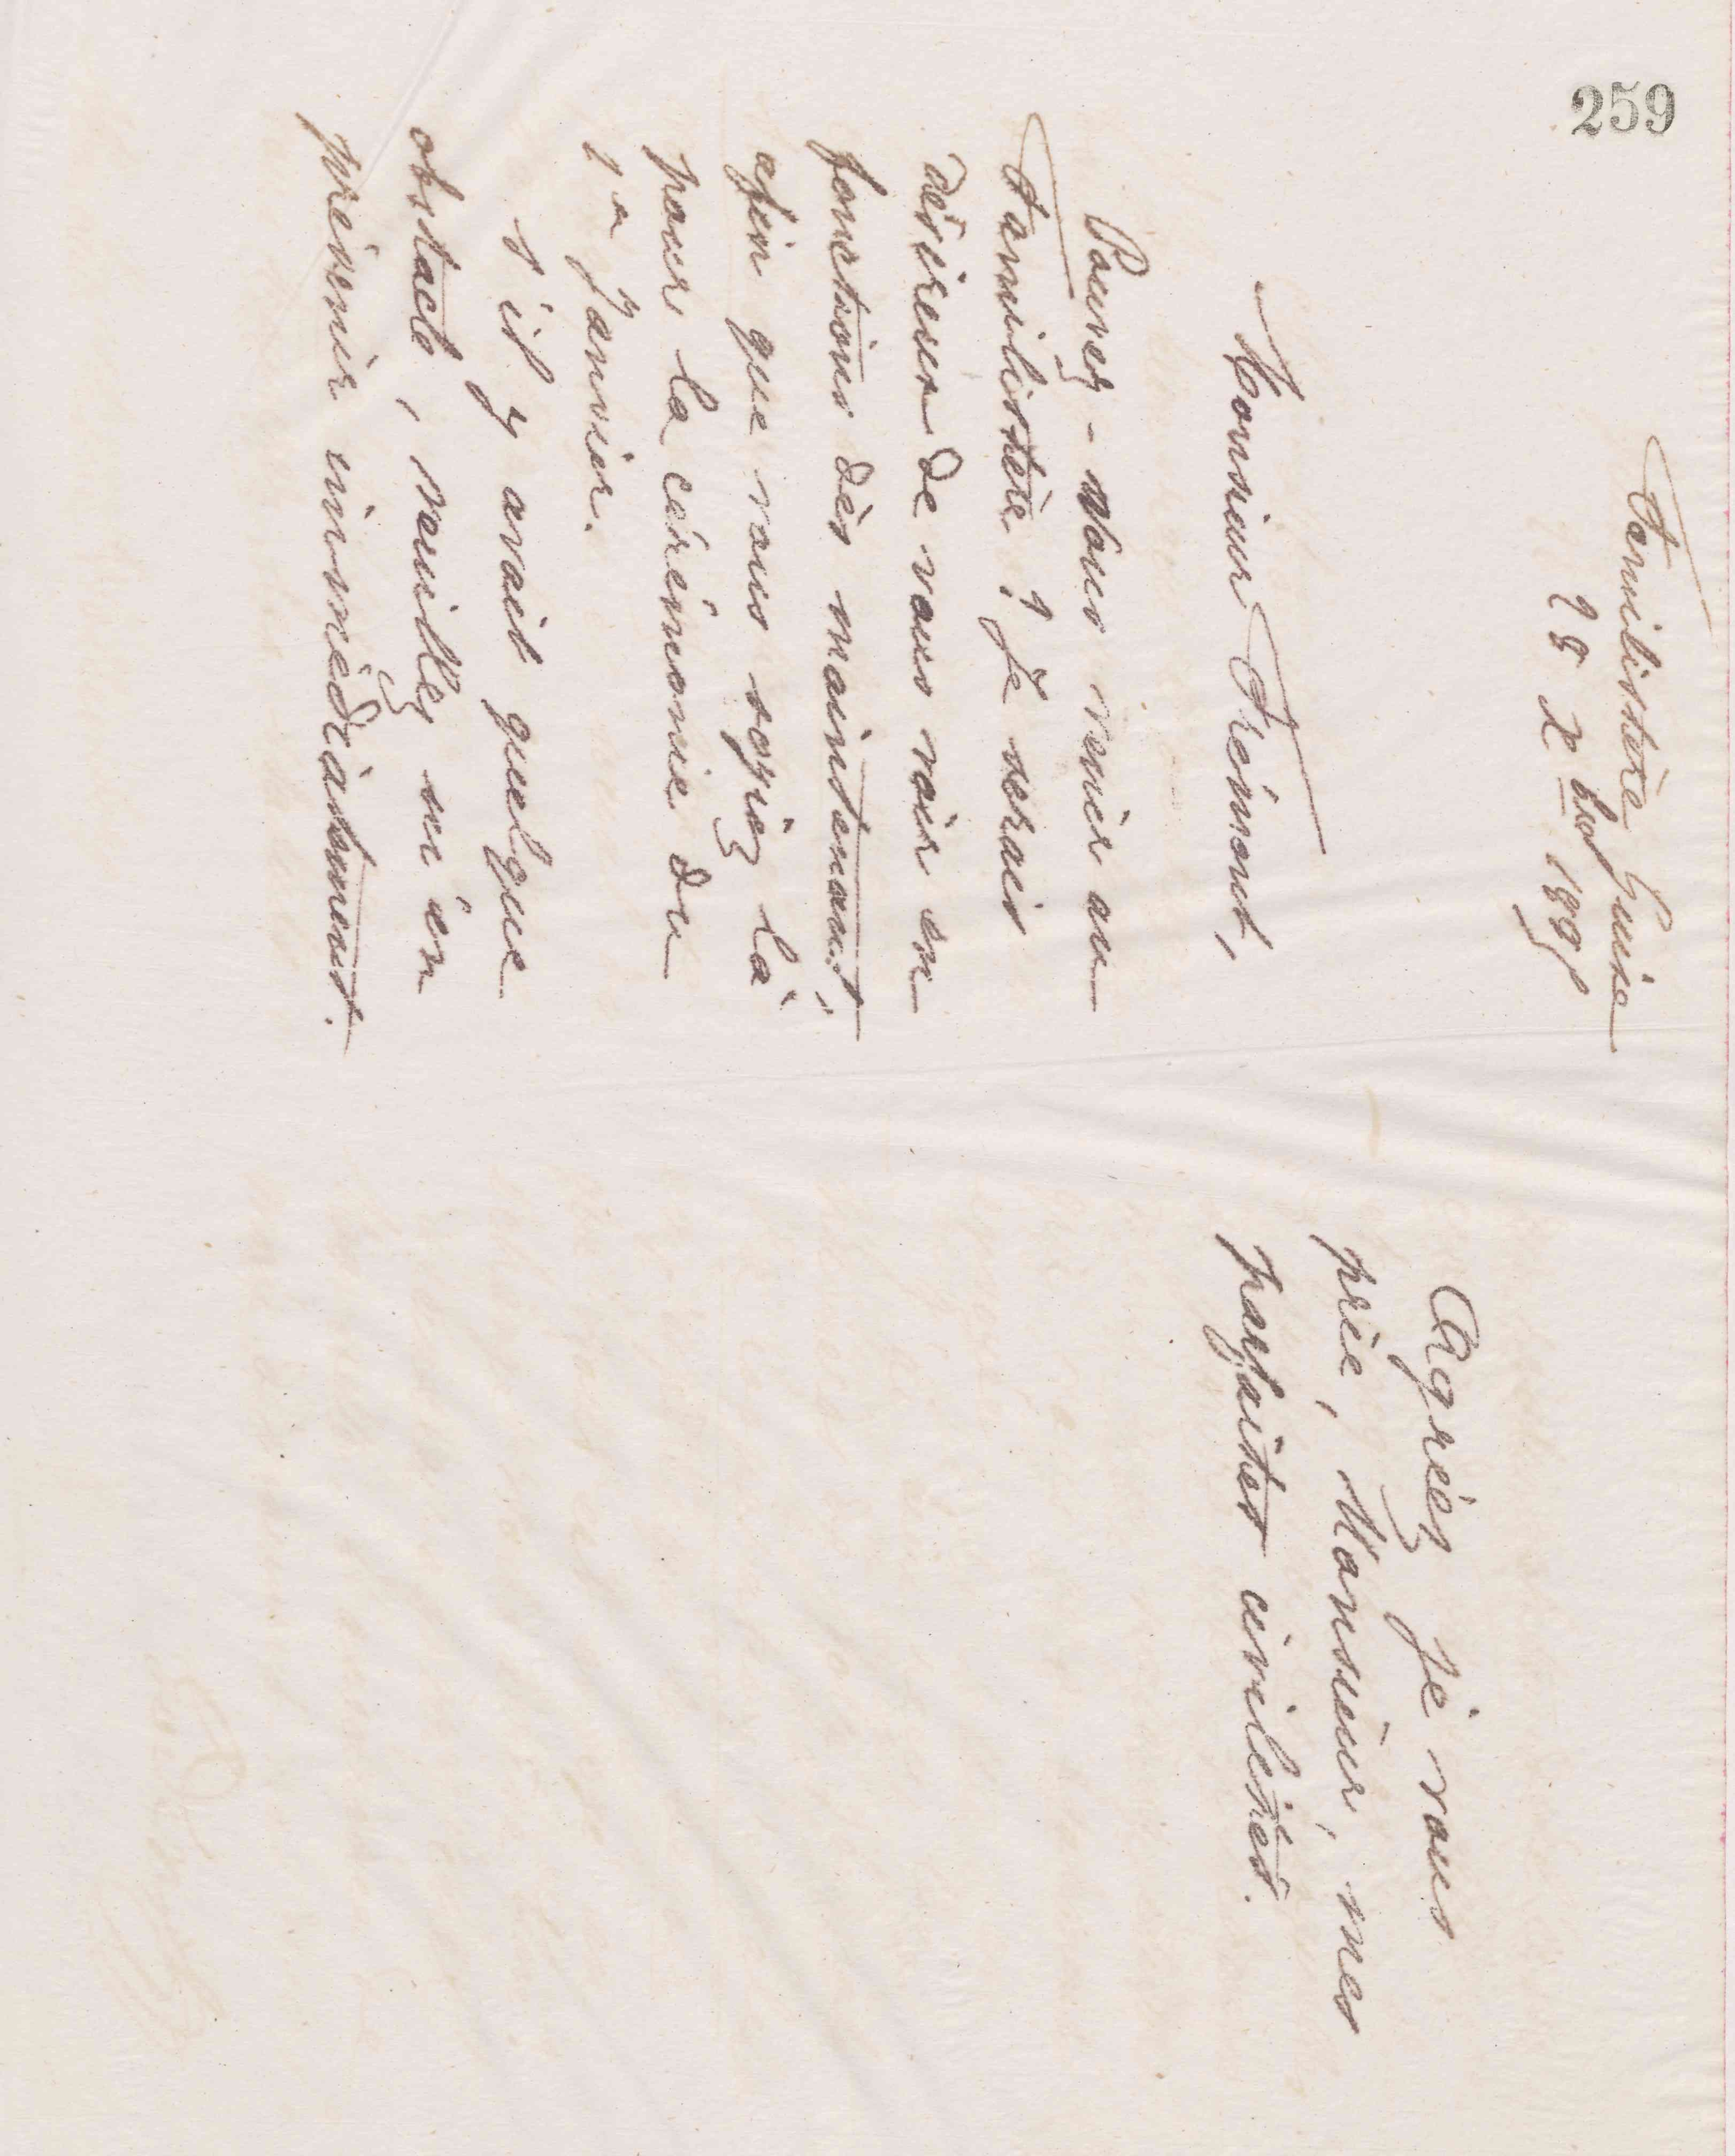 259
Familistère Guise
28 Xbre 1891
Monsieur Frémont,
Pouvez-vous venir au
Familistère ? Je serais
désireux de vous voir en
fonctions dès maintenant,
afin que vous soyiez là
pour la cérémonie du
1er Janvier.
S'il y avait quelque
obstacle, veuillez m'en
prévenir immédiatement.
Agréez je vous
prie, Monsieur, mes
parfaites civilités.